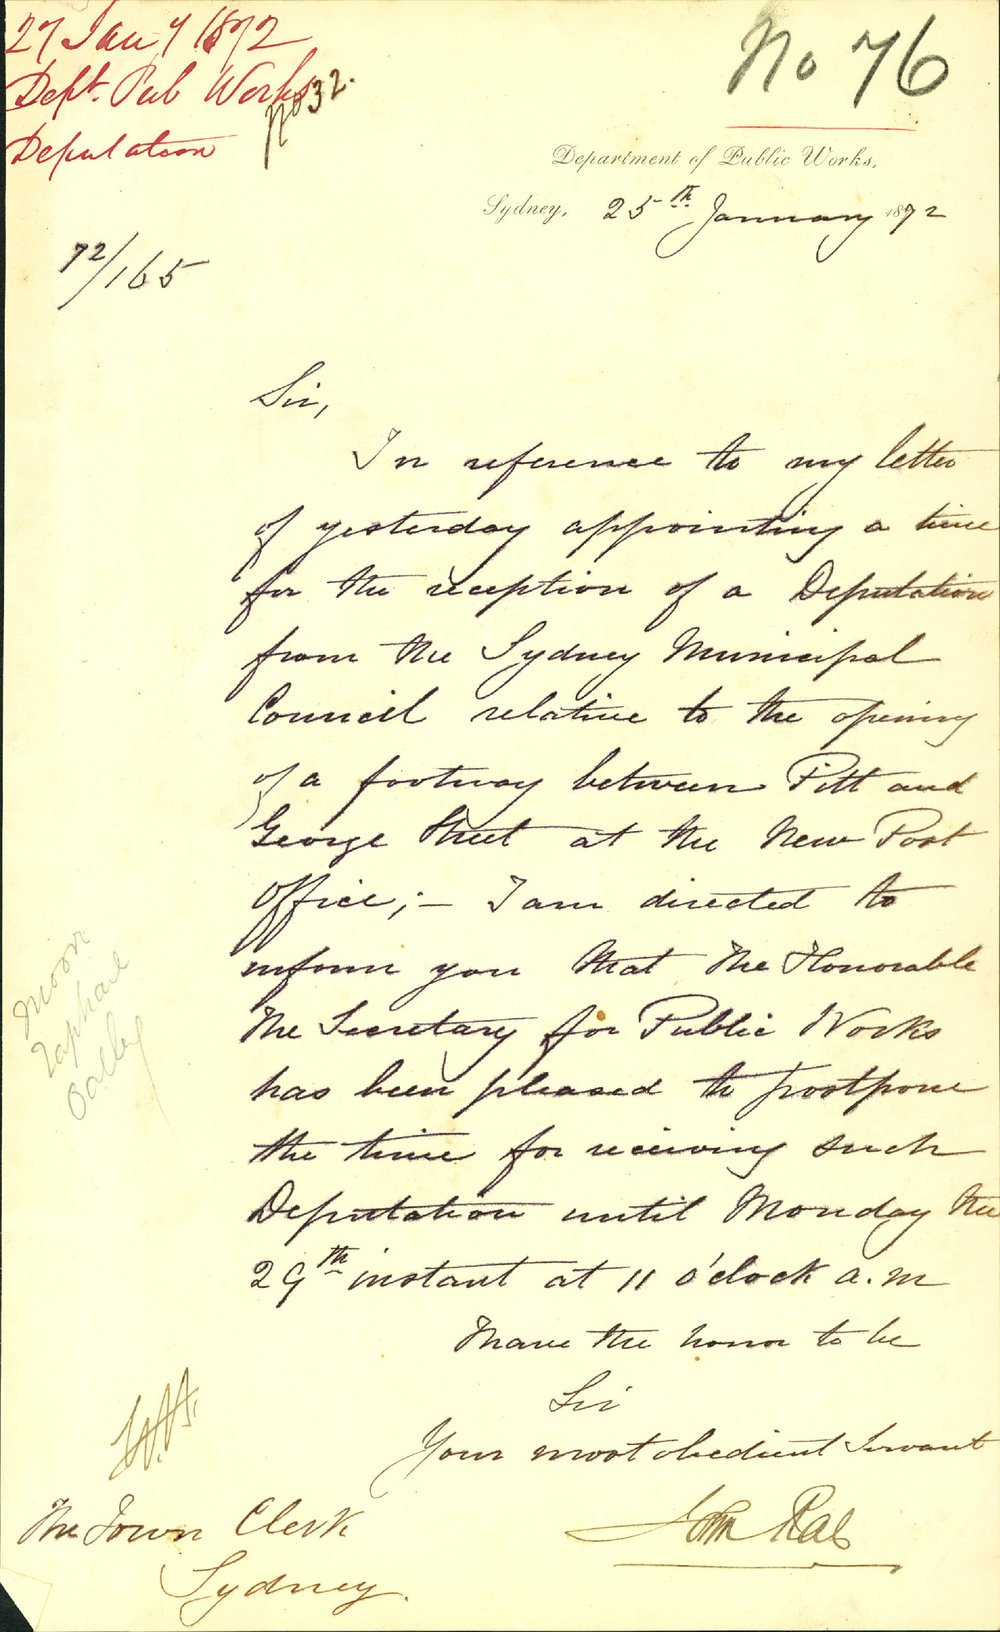 27 Jany 1872
Dept. Pub Works
Deputation
No 32.
No 76
Department of Public Works,
Sydney, 25th January 1872
72/165
Sir,
In reference to my letter
of yesterday appointing a time
for the reception of a Deputation
from the Sydney Municipal
Council relative to the opening
of a footway between Pitt and
George Street at the New Post
Office;- I am directed to
inform you that The Honorable
The Secretary for Public Works
has been pleased to postpone
the time for receiving such
Deputation until Monday the
29th instant at 11 o'clock a.m
I have the honor to be
Sir
Your most obedient Servant
John Rae
The Town Clerk
Sydney.
Moon
Oatley